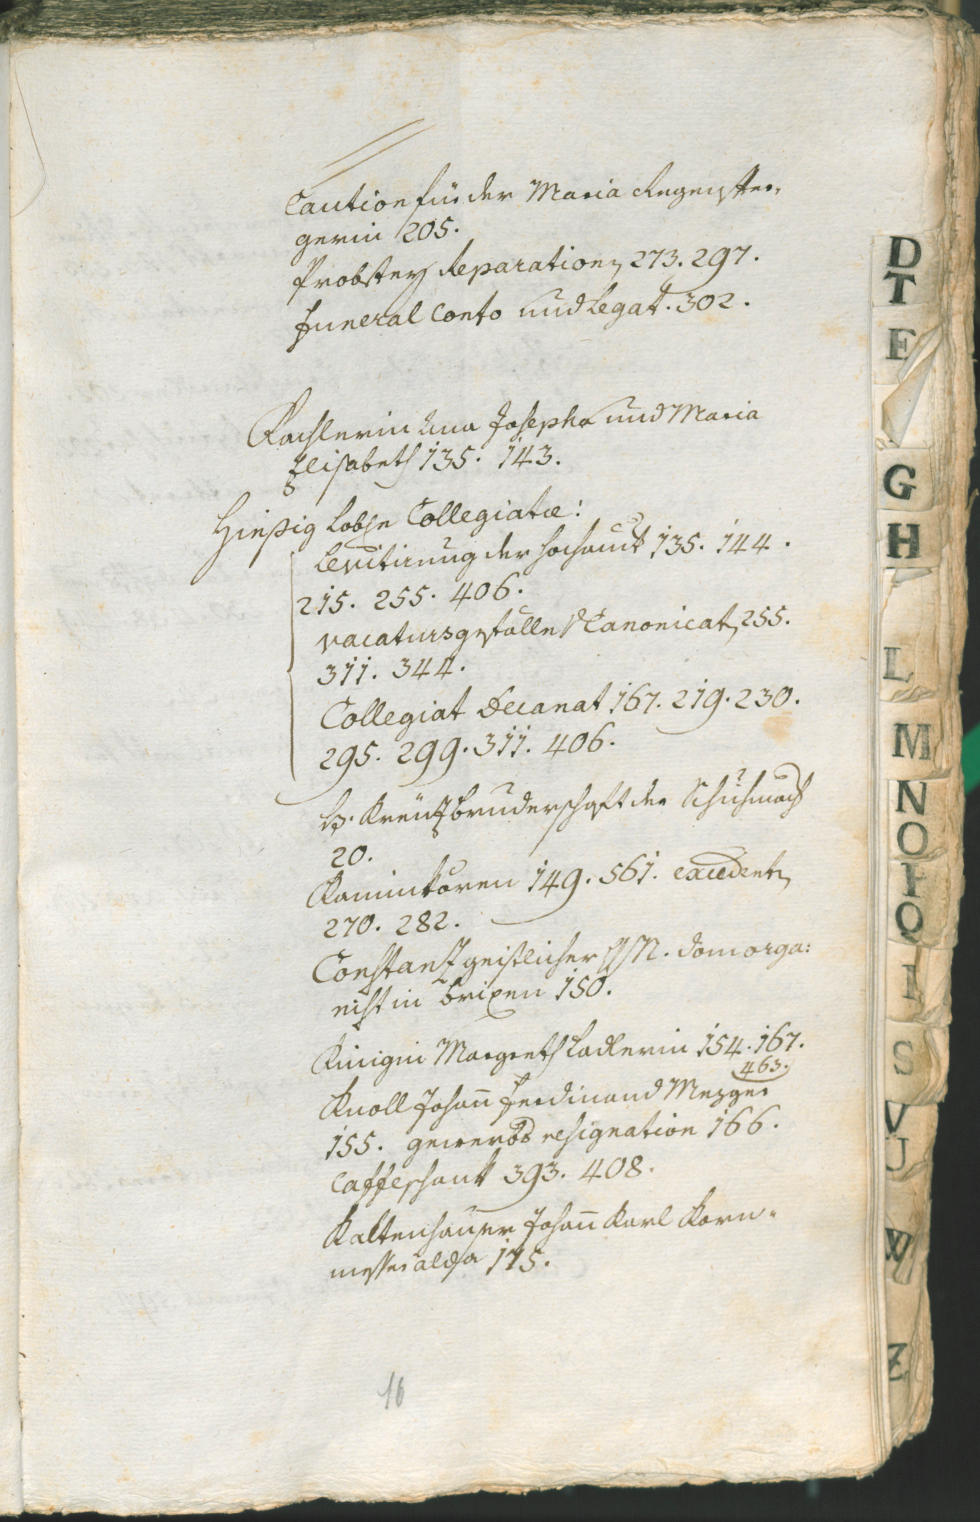 Caution für der Maria Regenster,
gerin 205.
Probstey Reparation 273. 297.
Funeral Conto und Legat. 302.
Kachlerin Ana Josepha und Maria
Elisabeth 135. 143.
Hiesig Lobl. Collegiatæ:
Levitirung der Hochamt 135. 144.
215. 255. 406.
vacatursgefälle Canonicat 255.
311. 344.
Collegiat Decanat 167. 219. 230.
295. 299. 311. 406.
Kreutzbruderschaft der Schuhmach
20.
149. 561.
270. 282.
Constantz geistlicher N. domorga:
nist in Brixen 150.
Kinigin Margreth Ladlerin 154. 167.
463.
Knoll Johan Ferdinand Mezger
155. gewerbs resignation 166.
Caffeschank 393. 408.
Kaltenhauser Johan Karl Korn-
messer alda 175.
16
D
T
E
G
H
L
M
N
O
P
Q
S
V
U
W
Z